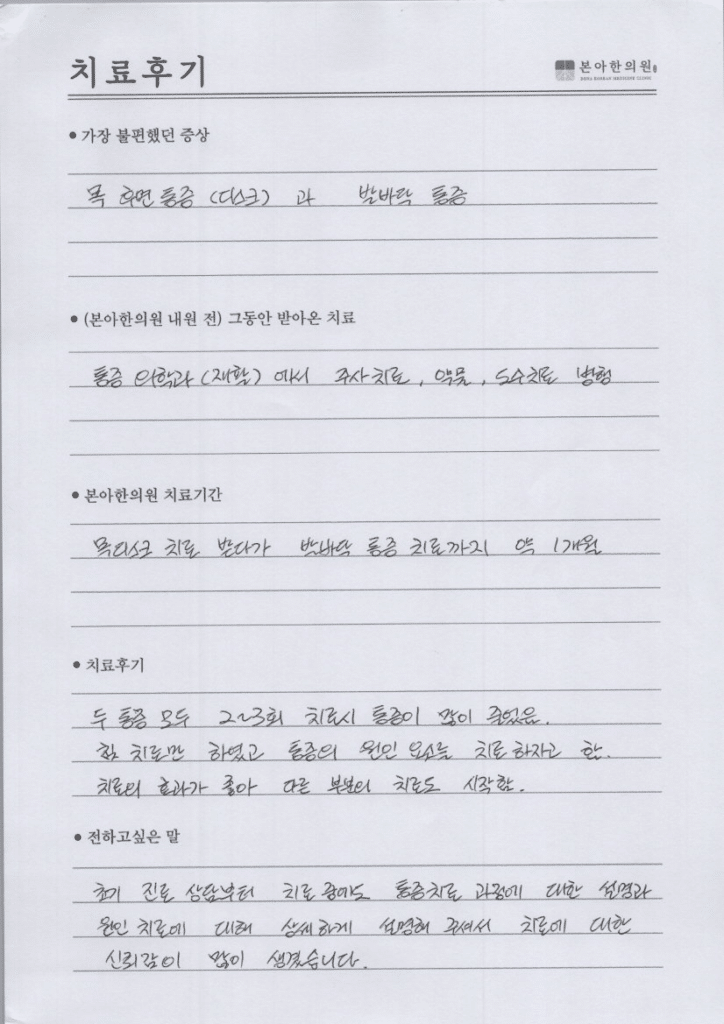 치료후기
본아한의원
BONA KOREAN MEDICINE CLINIC
• 가장 불편했던 증상
목 후면 통증 (디스크) 과 발바닥 통증
• (본아한의원 내원 전) 그동안 받아온 치료
통증 의학과 (재활) 에서 주사치료, 약물, 도수치료 병행
• 본아한의원 치료기간
목디스크 치료 받다가 발바닥 통증 치료까지 약 1개월
• 치료후기
두 통증 모두 2~3회 치료시 통증이 많이 줄었음.
침 치료만 하였고 통증의 원인 요소를 치료하자고 함.
치료의 효과가 좋아 다른 부분의 치료도 시작함.
• 전하고싶은 말
초기 진료 상담부터 치료 중에도 통증치료 과정에 대한 설명과
원인 치료에 대해 상세하게 설명해 주셔서 치료에 대한
신뢰감이 많이 생겼습니다.